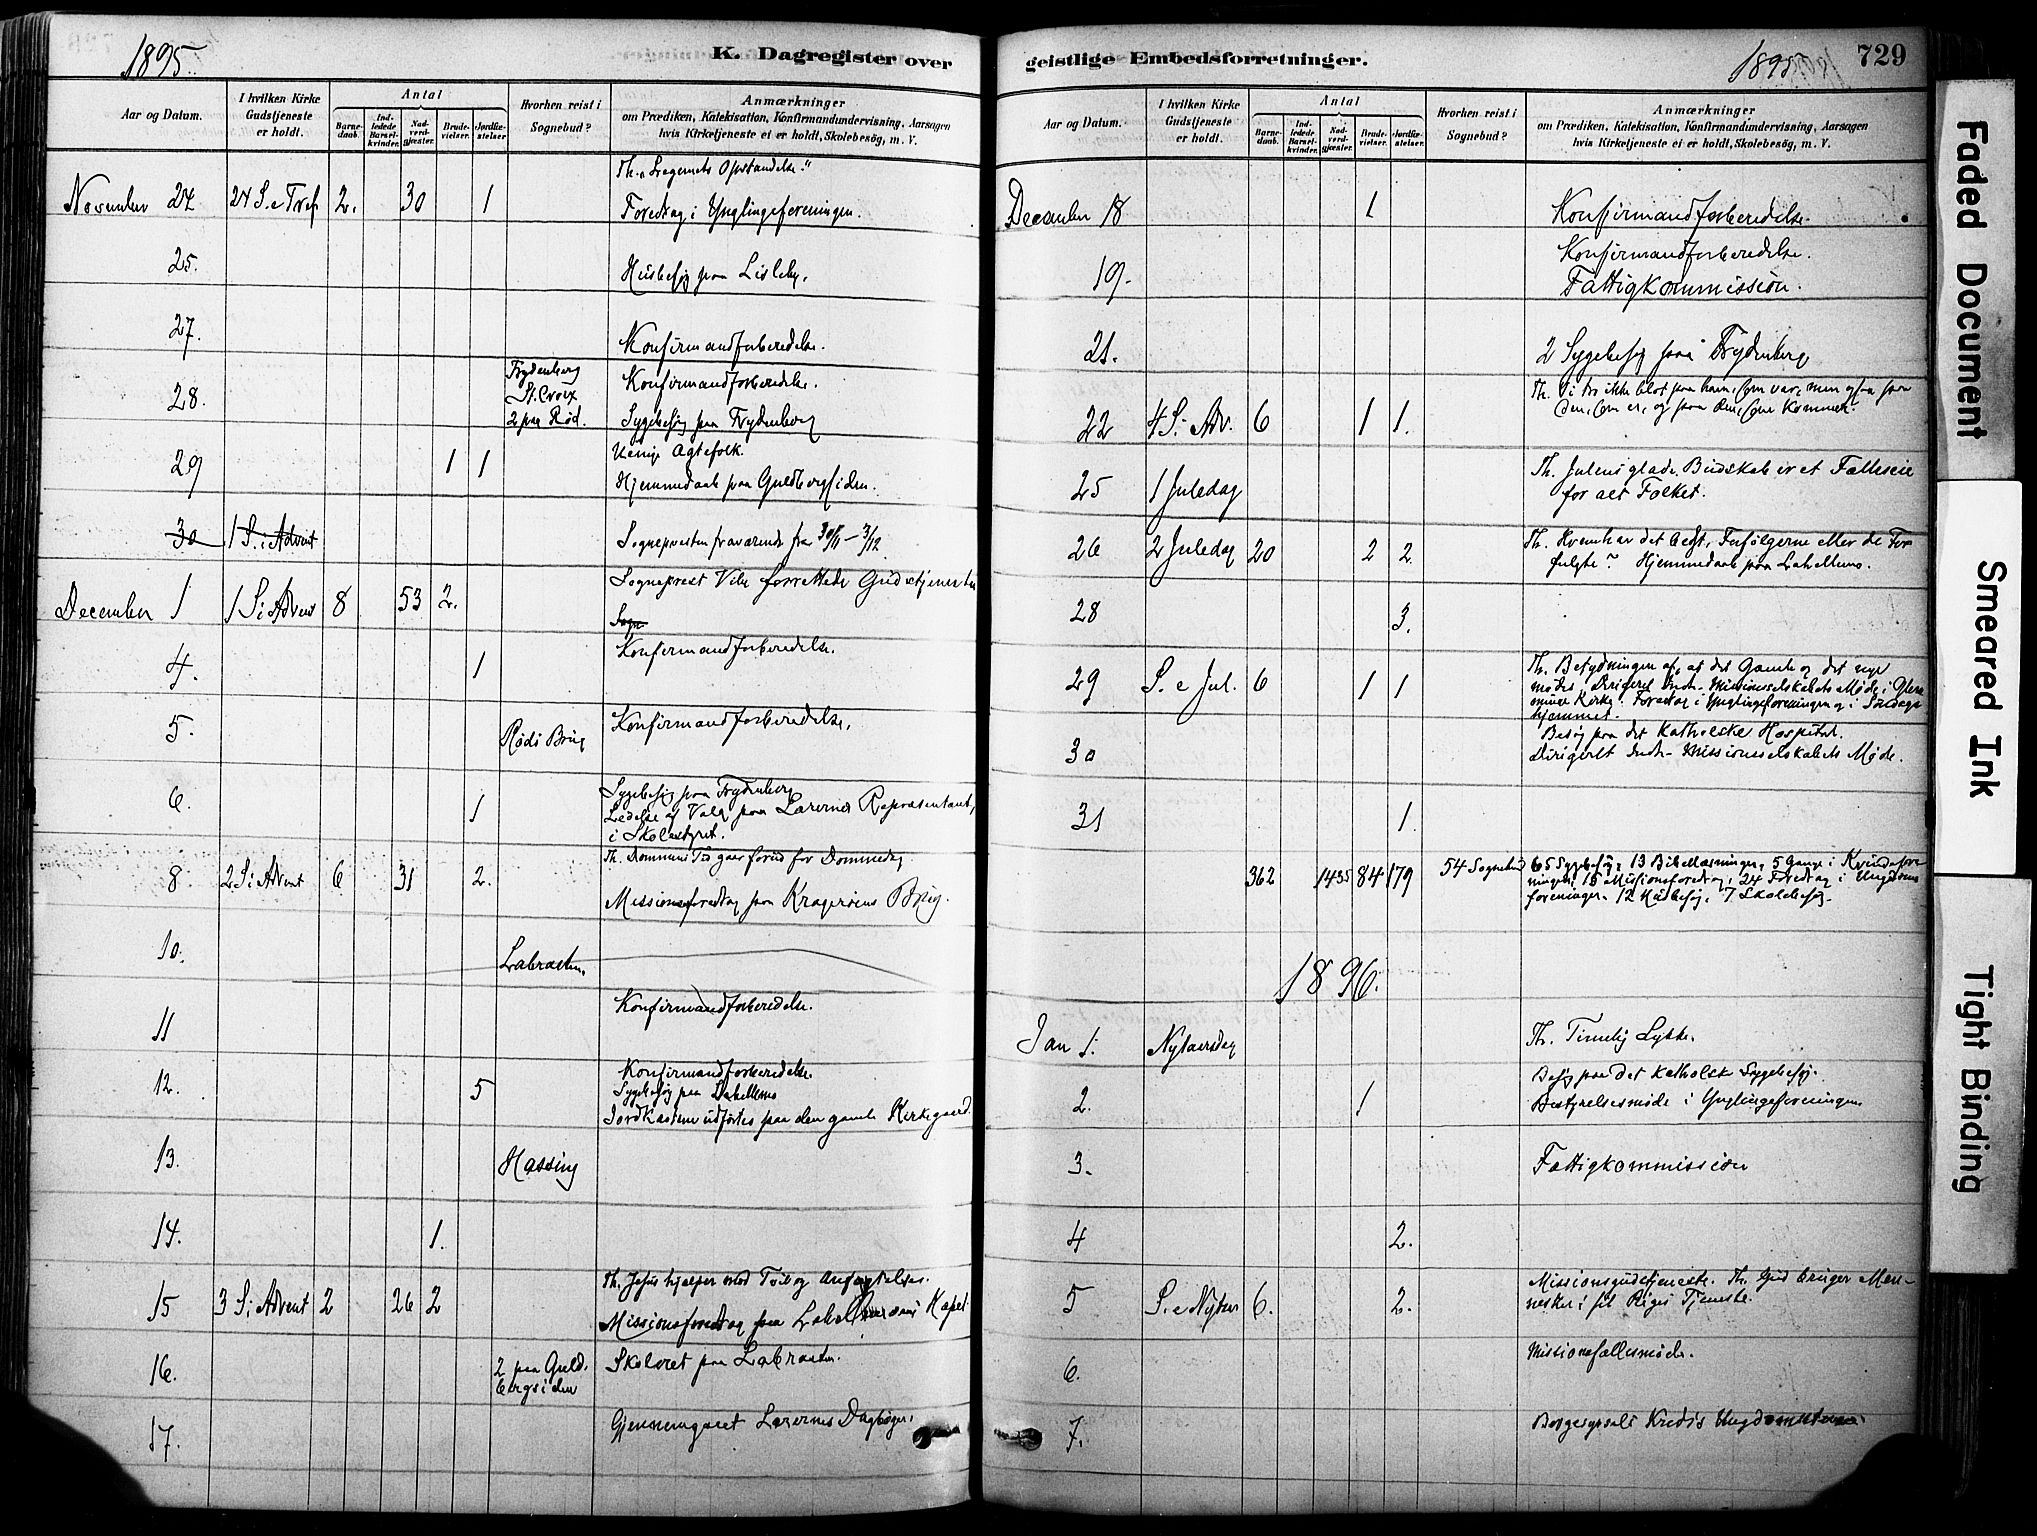 1895
K. Dagregister over
Aar og Datum.
I hvilken Kirke
Gudstjeneste
er holdt.
Antal
Barne-
daab.
Ind-
ledede
Barsel-
kvinder.
Nad-
verd-
gjæster.
Brude-
vielser.
Jordfæ-
stelser.
Hvorhen reist i
Sognebud?
Anmærkninger
om Prædiken, Katekisation, Konfirmandundervisning, Aarsagen
hvis Kirketjeneste ei er holdt, Skolebesög, m. V.
Th. Opstandelse."
November 24 24 S. e Tref 2. 30 1 Foredrag i Ynglingeforeningen.
25. Husbesøg paa Lisleby.
27. Konfirmandforberedelse.
28. Frydenberg
St. Croix
2 paa Rød.
Konfirmandforberedelse.
Sygebesøg paa Frydenberg
29 1 1 Uenige Ægtefolk.
Hjemmedaab paa Guldbergsiden.
30 1 S. i Advent Sognepresten fraværende fra 30/11 – 3/12
December 1 1 S. i Advent 8 53 2. Sogneprest Vibe forrettede Gudstjenesten
Sogn
4. 1 Konfirmandforberedelse.
5. Røds Brug Konfirmandforberedelse.
6 1 Sygebesøg paa Frydenberg
Ledelse af Valg paa Lærernes Repræsentant,
i Skolestyret.
8. 2 S. i Advent 6 31 2. Th. Dommens Tid gaar forud for Dommedag
Missionsforedrag paa Kragerøens Brug.
10. Labraaten.
11 Konfirmandforberedelse.
12. 5 Konfirmandforberedelse.
Sygebesøg paa Lahellemo
Jordkastene udførtes paa den gamle Kirkegaard.
13. Hassing
14. 1.
15 3 S. i Advent 2 26 2 Th. Jesus hjælper mod Tvil og Anfægtelser.
Missionsforedrag paa Kapel
16. 2 paa Guld-
bergsiden
Skoleret paa Labraaten.
17. Gjennemgaaet Lærernes Dagbøger.
geistlige Embedsforretninger.
1895
729
Aar og Datum.
I hvilken Kirke
Gudstjeneste
er holdt.
Antal
Barne-
daab.
Ind-
ledede
Barsel-
kvinder.
Nad-
verd-
gjæster.
Brude-
vielser.
Jordfæ-
stelser.
Hvorhen reist i
Sognebud?
Anmærkninger
om Prædiken, Katekisation, Konfirmandundervisning, Aarsagen
hvis Kirketjeneste ei er holdt, Skolebesög, m. V.
December 18 1 Konfirmandforberedelse.
19. Konfirmandforberedelse.
Fattigkommission.
21. 2 Sygebesøg paa Frydenberg
22 4 S. i Adv. 6 1 1. Th. Vi tro ikke blot paa ham, som var, men ogsaa paa
den, som er, og paa den, som kommer.
25 1 Juledag Th. Julens glade Budskab er et Fælleseie
for alt Folket.
26 2 Juledag 20 2 2. Th. Hvem har det bedst, Forfølgerne eller de For-
fulgte? Hjemmedaab paa Lahellemo.
28 3.
29 S. e Jul. 6 1 1 Th. Betydningen af, at det Gamle og det nye
mødes. Dirigeret Indr. Missionsselskabets Møde i Glem-
minge Kirke. Foredrag i Ynglingeforeningen og i Søndags-
hjemmet.
30 Besøg paa det Katholske Hospital.
Dirigeret Indr. Missionsselskabets Møde.
31 1.
362 1435 84 179 54 Sognebud 65 Sygebesøg, 13 Bibellæsninger, 5 Gange i Kvindefore-
ninger, 18 Missionsforedrag, 24 Foredrag i Ungdoms
foreninger. 12 Husbesøg. 7 Skolebesøg.
1896.
Jan 1. Nytaarsdag Th. Timelig Lykke.
2. 1 Besøg paa det Katholske Sygehus.
Bestyrelsesmøde i Ynglingeforeningen
3. Fattigkommission
4 2.
5 S. e Nytaar 6. 2. Missionsgudstjeneste. Th. Gud bruger Men-
nesker i sit Riges Tjeneste.
6. Missionsfællesmøde.
7. Borgesyssels Kreds's
Faded Document
Smeared Ink
Tight Binding